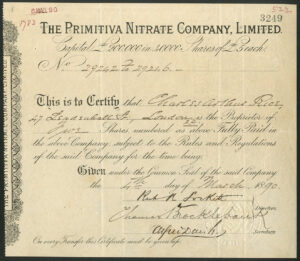 3249
THE PRIMITIVA NITRATE COMPANY, LIMITED.
Capital £200,000 in 40000 Shares of £5 each.
No. 29242 to 29246
This is to Certify that Charles Arthur
47 London is the Proprietor of
Five Shares numbered as above Fully Paid in
the above Company, subject to the Rules and Regulations
of the said Company for the time being.
Given under the Common Seal of the said Company
the day of March 1890.
Robt R. Lockett
Thomas Brocklebank
Directors
Secretary
On every Transfer this Certificate must be given up.